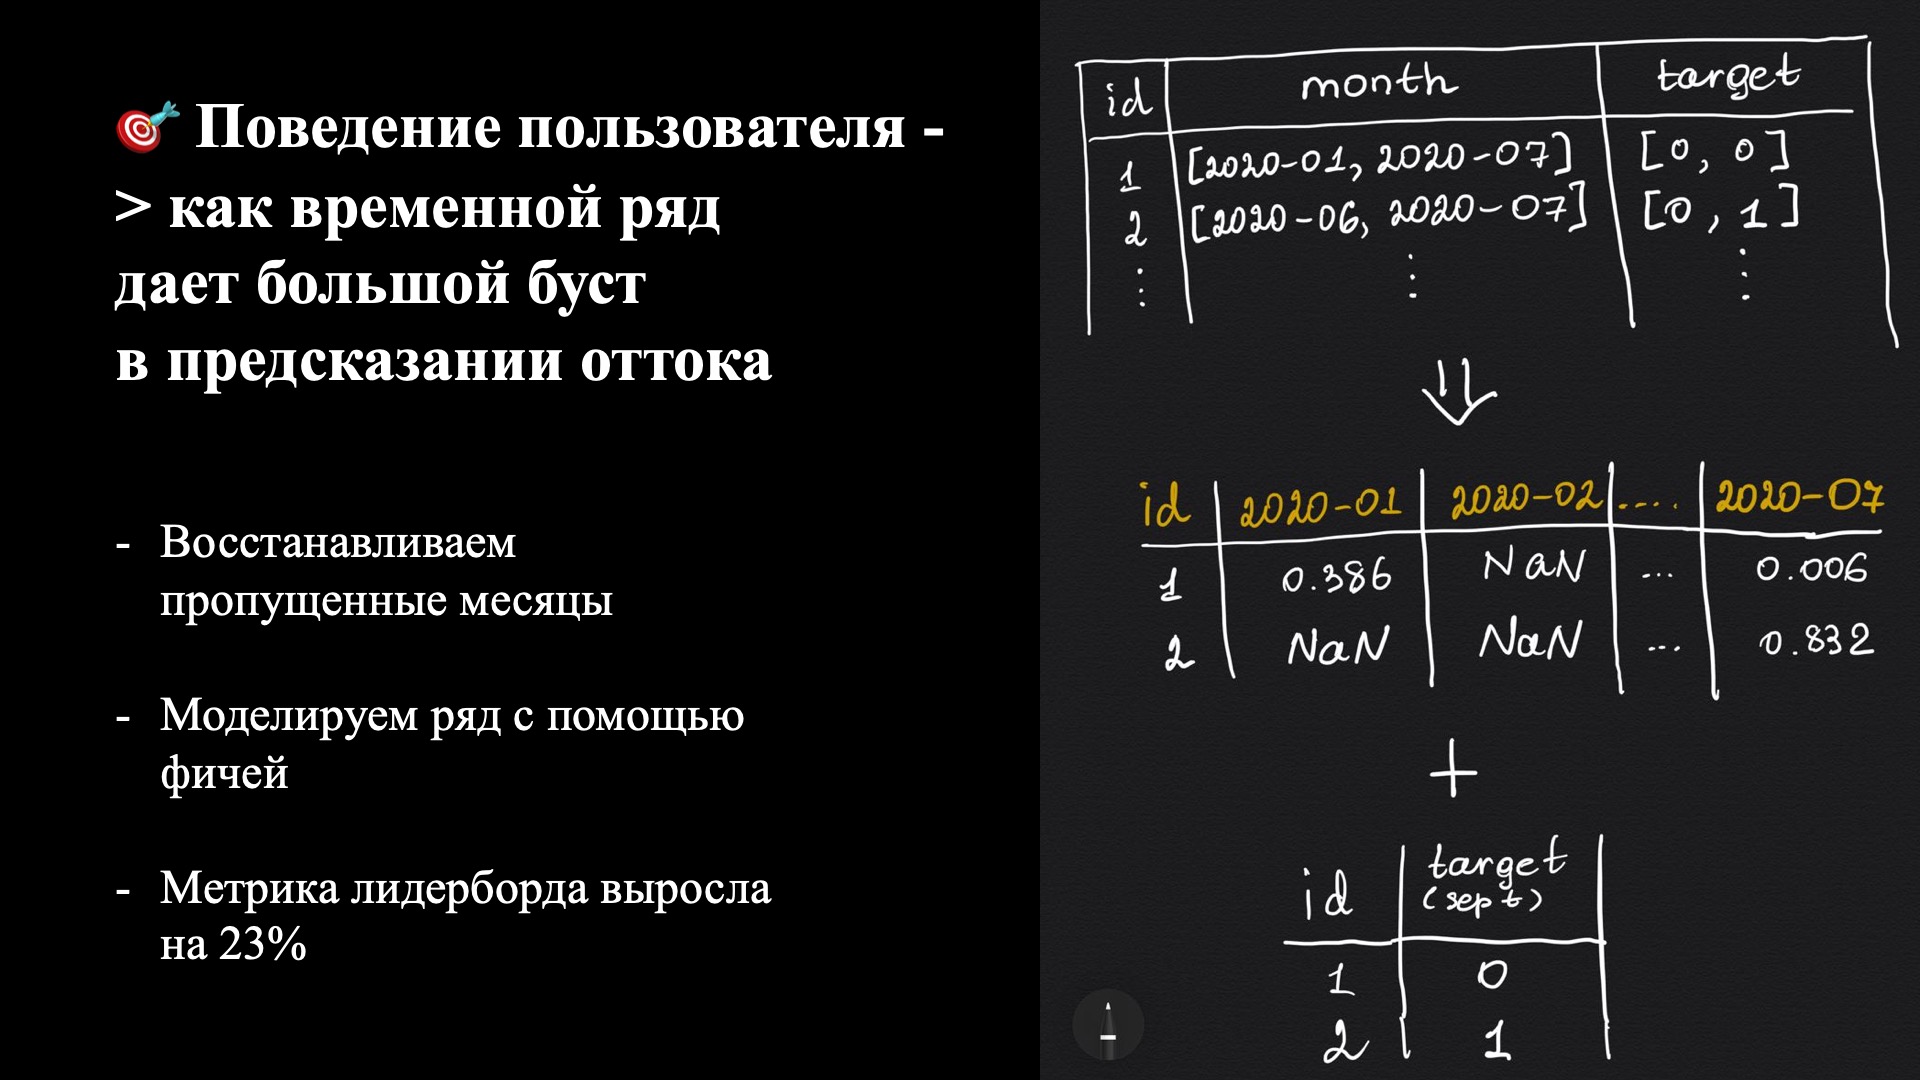 🎯 Поведение пользователя -
> как временной ряд
дает большой буст
в предсказании оттока
- Восстанавливаем
пропущенные месяцы
- Моделируем ряд с помощью
фичей
- Метрика лидерборда выросла
на 23%
id month target
1 [2020-01, 2020-07] [0, 0]
2 [2020-06, 2020-07] [0, 1]
⋮ ⋮ ⋮
⇓
id 2020-01 2020-02 .... 2020-07
1 0.386 NaN ... 0.006
2 NaN NaN ... 0.832
+
id target
(sept)
1 0
2 1